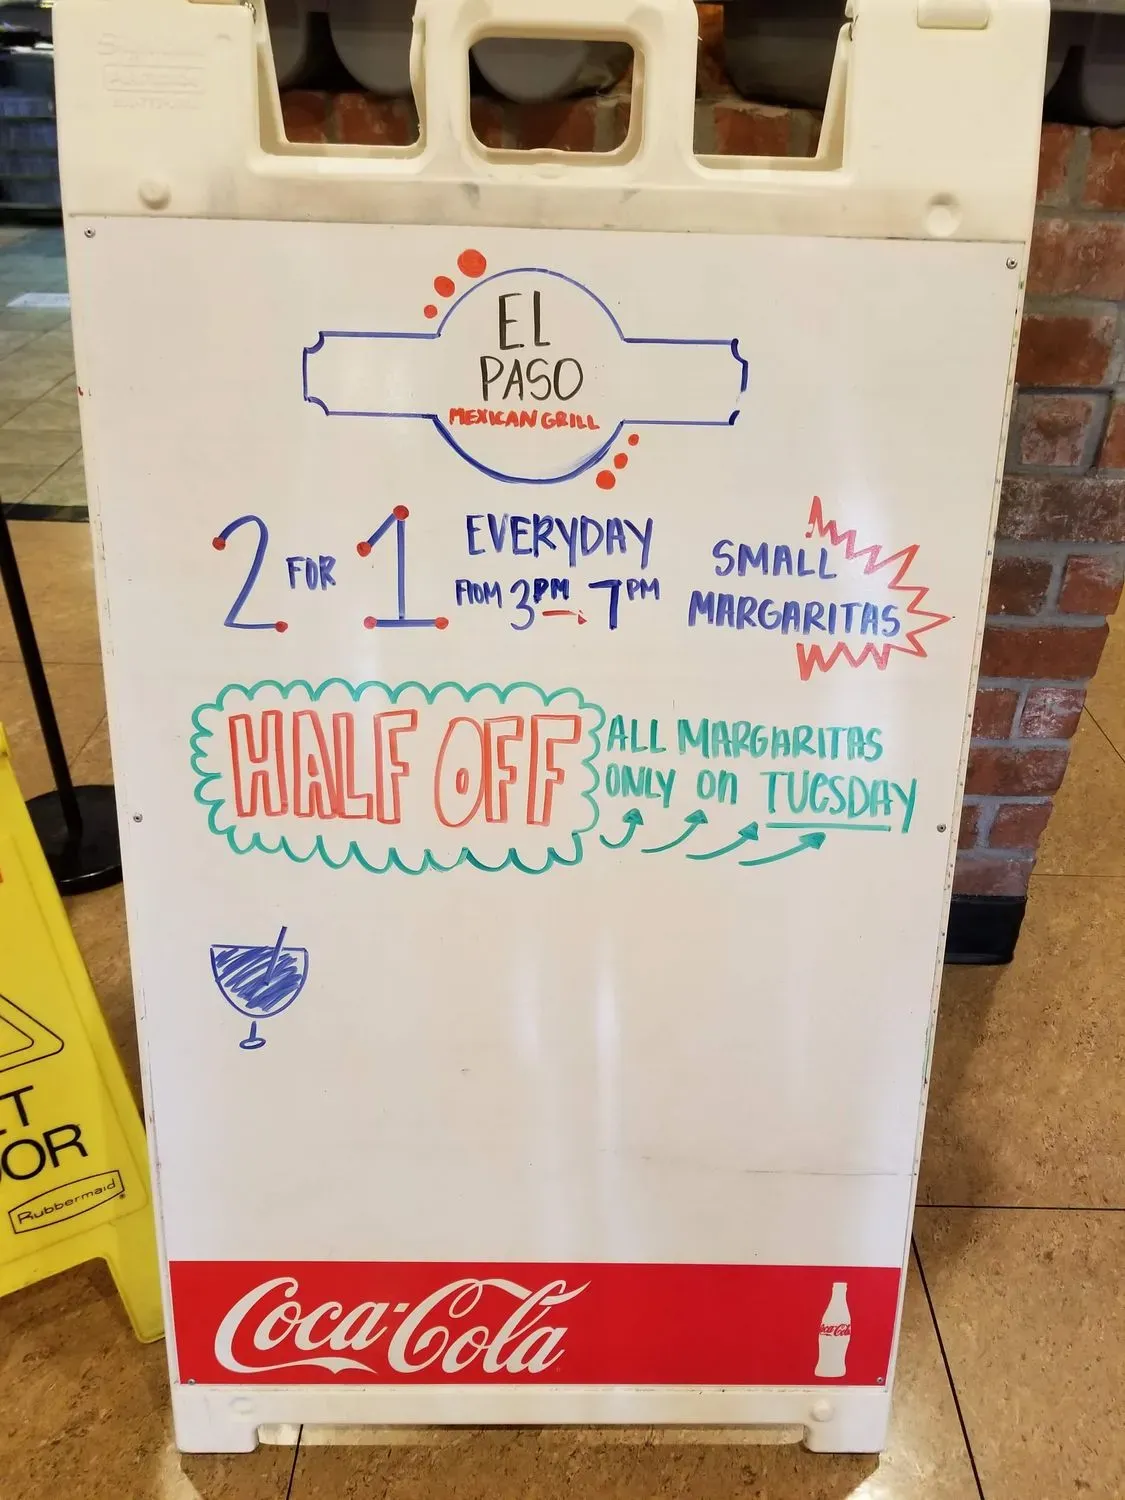 EL
PASO
MEXICAN GRILL
2 FOR 1
EVERYDAY
FROM 3PM → 7PM
SMALL
MARGARITAS
HALF OFF
ALL MARGARITAS
ONLY ON TUESDAY
OR
Rubbermaid
Coca-Cola
Coca-Cola